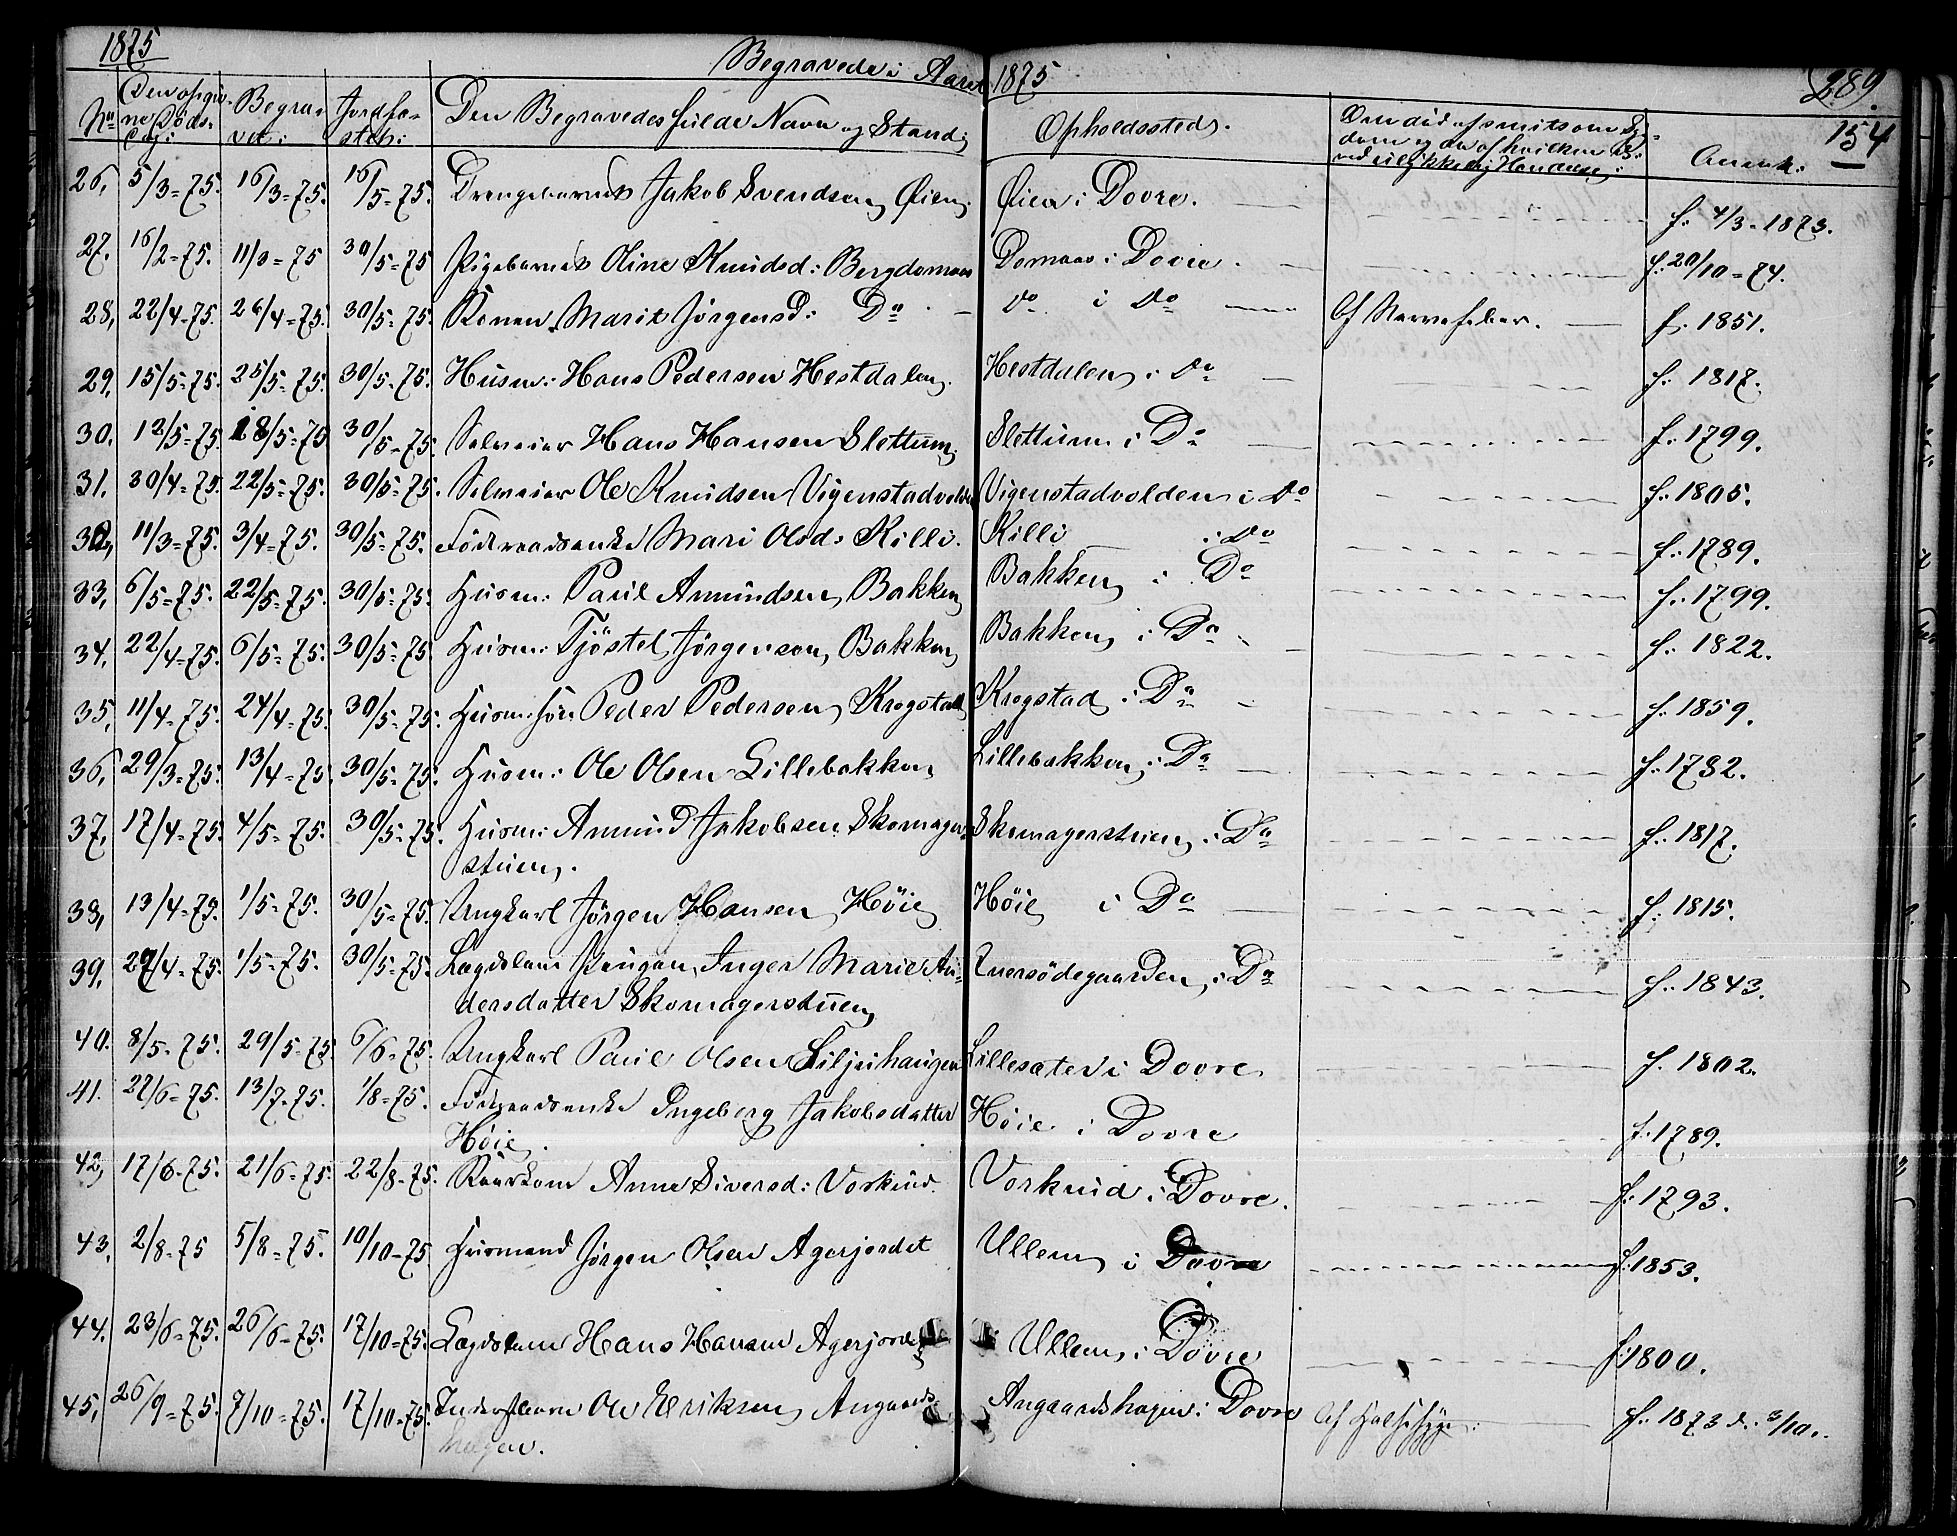 1875
Begravede i Aaret 1875
289.
154
No
Den opgivne Dødsdag:
Begravet:
Jordfæstet:
Den Begravedes fulde Navn og Stand:
Opholdssted.
Anmk:
26, 5/3=75. 16/3=75. 16/5=75. Drengebarnet Jakob Svendsen Øien, Øien i Dovre. f: 4/3-1873.
27. 16/2=75. 11/3=75 30/5=75 Pigebarnet Oline Knudsd: Bergdomaas Domaas i Dovre. f: 20/10=74.
28, 22/4=75. 26/4=75. 30/5=75. Konen Marit Jørgensd: Do Do i Do Af Nervefeber. f. 1851.
29, 15/5=75. 25/5=75. 30/5=75. Husm: Hans Pedersen Hestdalen. Hestdalen i Do f: 1817.
30, 12/5=75. 18/5=75 30/5=75. Selveier Hans Hansen Slettum, Slettum i Do f: 1799.
31. 30/4=75. 22/5=75. 30/5=75. Selveier Ole Knudsen Vigenstadvolden Vigenstadvolden i Do f: 1805.
32, 11/3=75. 3/4=75. 30/5=75. Föderaadsenke Mari Olsd: Killi. Killi i Do f: 1789.
33, 6/5=75. 22/5=75. 30/5=75. Husm: Paul Amundsen Bakken Bakken i Do f: 1799.
34, 22/4=75. 6/5=75. 30/5=75 Husm: Tjöstel Jørgensen, Bakken Bakken i Do f: 1822.
35, 11/4=75. 24/4=75. 30/5=75. Husm: sön Peder Pedersen Krogstad Krogstad i Do f: 1859.
36, 29/3=75. 13/4=75. 30/5=75. Husm: Ole Olsen Lillebakken, Lillebakken i Do f: 1782.
37, 17/4=75 4/5=75. 30/5=75. Husm: Amund Jakobsen Skomager- Skomagerstuen, i Do f: 1817.
stuen,.
38, 13/4=75. 1/5=75. 30/5=75. Ungkarl Jörgen Hansen Höie Höie i Do f: 1815.
39, 27/4=75. 1/5=75. 30/5=75. Lægdslem Pigen Inger Marie An- Tversödegaarden, i Do f: 1843.
dersdatter Skomagerstuen
40. 8/5=75. 29/5=75. 6/6=75. Ungkarl Paul Olsen Liljehaugen Lillesæter i Dovre f. 1802.
41. 27/6=75. 13/7=75. 1/8=75. Föderaadsenke Ingeborg Jakobsdatter Höie i Dovre f: 1789.
Höie.
42, 17/6=75. 21/6=75. 22/8=75. Kaarkone Anne Siversd: Vorkind. Vorkind i Dovre. f: 1793.
43, 2/8=75 5/8=75. 10/10=75 Husmand Jörgen Olsen Agerjordet Ullem i Dovre f: 1853.
44. 23/6=75. 26/6=75. 17/10=75. Lægdslem Hans Hansen Agerjordet Ullem i Dovre f: 1800.
45, 26/9=75. 7/10=75. 17/10=75. Inderstbarn Ole Eriksen Angaards- Angaardshagen i Dovre Af Halssyge: f: 1873 d. 3/10.
hagen.